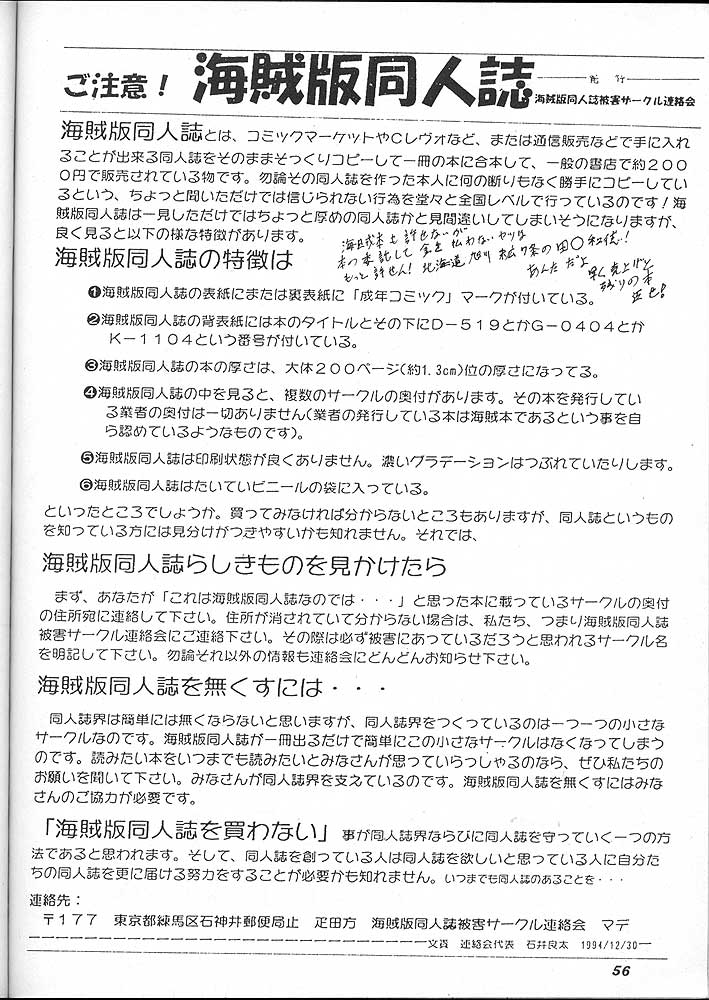 ご注意！ 海賊版同人誌
発 行
海賊版同人誌被害サークル連絡会
海賊版同人誌とは、コミックマーケットやCレヴォなど、または通信販売などで手に入れ
ることが出来る同人誌をそのままそっくりコピーして一冊の本に合本して、一般の書店で約２００
０円で販売されている物です。勿論その同人誌を作った本人に何の断りもなく勝手にコピーしてい
るという、ちょっと聞いただけでは信じられない行為を堂々と全国レベルで行っているのです！海
賊版同人誌は一見しただけではちょっと厚めの同人誌かと見間違いしてしまいそうになりますが、
良く見ると以下の様な特徴があります。
海賊本も許せないが
本の委託して金を払わないヤツは
もっと許せん！北海道旭川
の田〇和代！
あんただよ
売上げと
残りの本
返せ！
海賊版同人誌の特徴は
❶海賊版同人誌の表紙にまたは裏表紙に「成年コミック」マークが付いている。
❷海賊版同人誌の背表紙には本のタイトルとその下にＤ－５１９とかＧ－０４０４とか
Ｋ－１１０４という番号が付いている。
❸海賊版同人誌の本の厚さは、大体２００ページ(約1.3cm)位の厚さになってる。
❹海賊版同人誌の中を見ると、複数のサークルの奥付があります。その本を発行してい
る業者の奥付は一切ありません(業者の発行している本は海賊本であるという事を自
ら認めているようなものです)。
❺海賊版同人誌は印刷状態が良くありません。濃いグラデーションはつぶれていたりします。
❻海賊版同人誌はたいていビニールの袋に入っている。
といったところでしょうか。買ってみなければ分からないところもありますが、同人誌というもの
を知っている方には見分けがつきやすいかも知れません。それでは、
海賊版同人誌らしきものを見かけたら
まず、あなたが「これは海賊版同人誌なのでは・・・」と思った本に載っているサークルの奥付
の住所宛に連絡して下さい。住所が消されていて分からない場合は、私たち、つまり海賊版同人誌
被害サークル連絡会にご連絡下さい。その際は必ず被害にあっているだろうと思われるサークル名
を明記して下さい。勿論それ以外の情報も連絡会にどんどんお知らせ下さい。
海賊版同人誌を無くすには・・・
同人誌界は簡単には無くならないと思いますが、同人誌界をつくっているのは一つ一つの小さな
サークルなのです。海賊版同人誌が一冊出るだけで簡単にこの小さなサークルはなくなってしまう
のです。読みたい本をいつまでも読みたいとみなさんが思っていらっしゃるのなら、ぜひ私たちの
お願いを聞いて下さい。みなさんが同人誌界を支えているのです。海賊版同人誌を無くすにはみな
さんのご協力が必要です。
「海賊版同人誌を買わない」事が同人誌界ならびに同人誌を守っていく一つの方
法であると思われます。そして、同人誌を創っている人は同人誌を欲しいと思っている人に自分た
ちの同人誌を更に届ける努力をすることが必要かも知れません。いつまでも同人誌のあることを・・・
連絡先：
〒１７７　東京都練馬区石神井郵便局止　疋田方　海賊版同人誌被害サークル連絡会　マデ
文責　連絡会代表　石井良太　1994/12/30
56